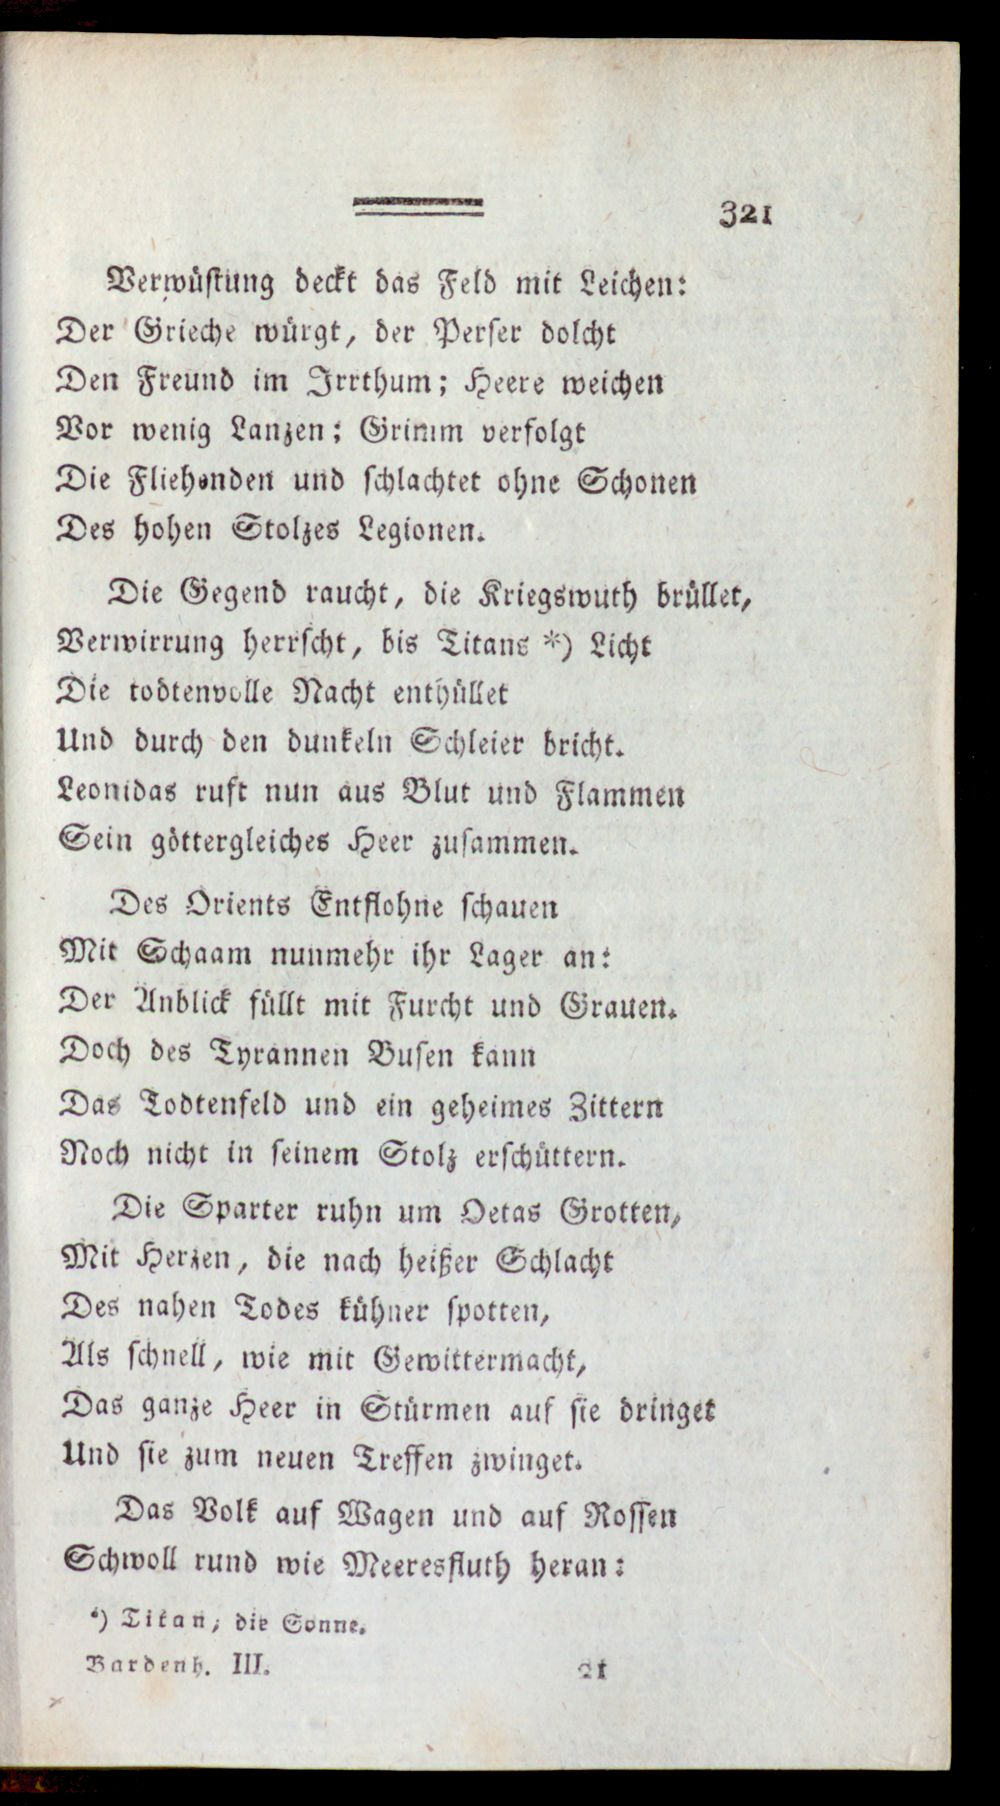 321
Verwüstung deckt das Feld mit Leichen:
Der Grieche würgt, der Perser dolcht
Den Freund im Irrthum; Heere weichen
Vor wenig Lanzen; Grimm verfolgt
Die Fliehenden und schlachtet ohne Schonen
Des hohen Stolzes Legionen.
Die Gegend raucht, die Kriegswuth brüllet,
Verwirrung herrscht, bis Titans *) Licht
Die todtenvolle Nacht enthüllet
Und durch den dunkeln Schleier bricht.
Leonidas ruft nun aus Blut und Flammen
Sein göttergleiches Heer zusammen.
Des Orients Entflohne schauen
Mit Schaam nunmehr ihr Lager an:
Der Anblick füllt mit Furcht und Grauen.
Doch des Tyrannen Busen kann
Das Todtenfeld und ein geheimes Zittern
Noch nicht in seinem Stolz erschüttern.
Die Sparter ruhn um Oetas Grotten,
Mit Herzen, die nach heißer Schlacht
Des nahen Todes kühner spotten,
Als schnell, wie mit Gewittermacht,
Das ganze Heer in Stürmen auf sie dringet
Und sie zum neuen Treffen zwinget.
Das Volk auf Wagen und auf Rossen
Schwoll rund wie Meeresfluth heran:
*) Titan, die Sonne.
Bardenh. III. 21